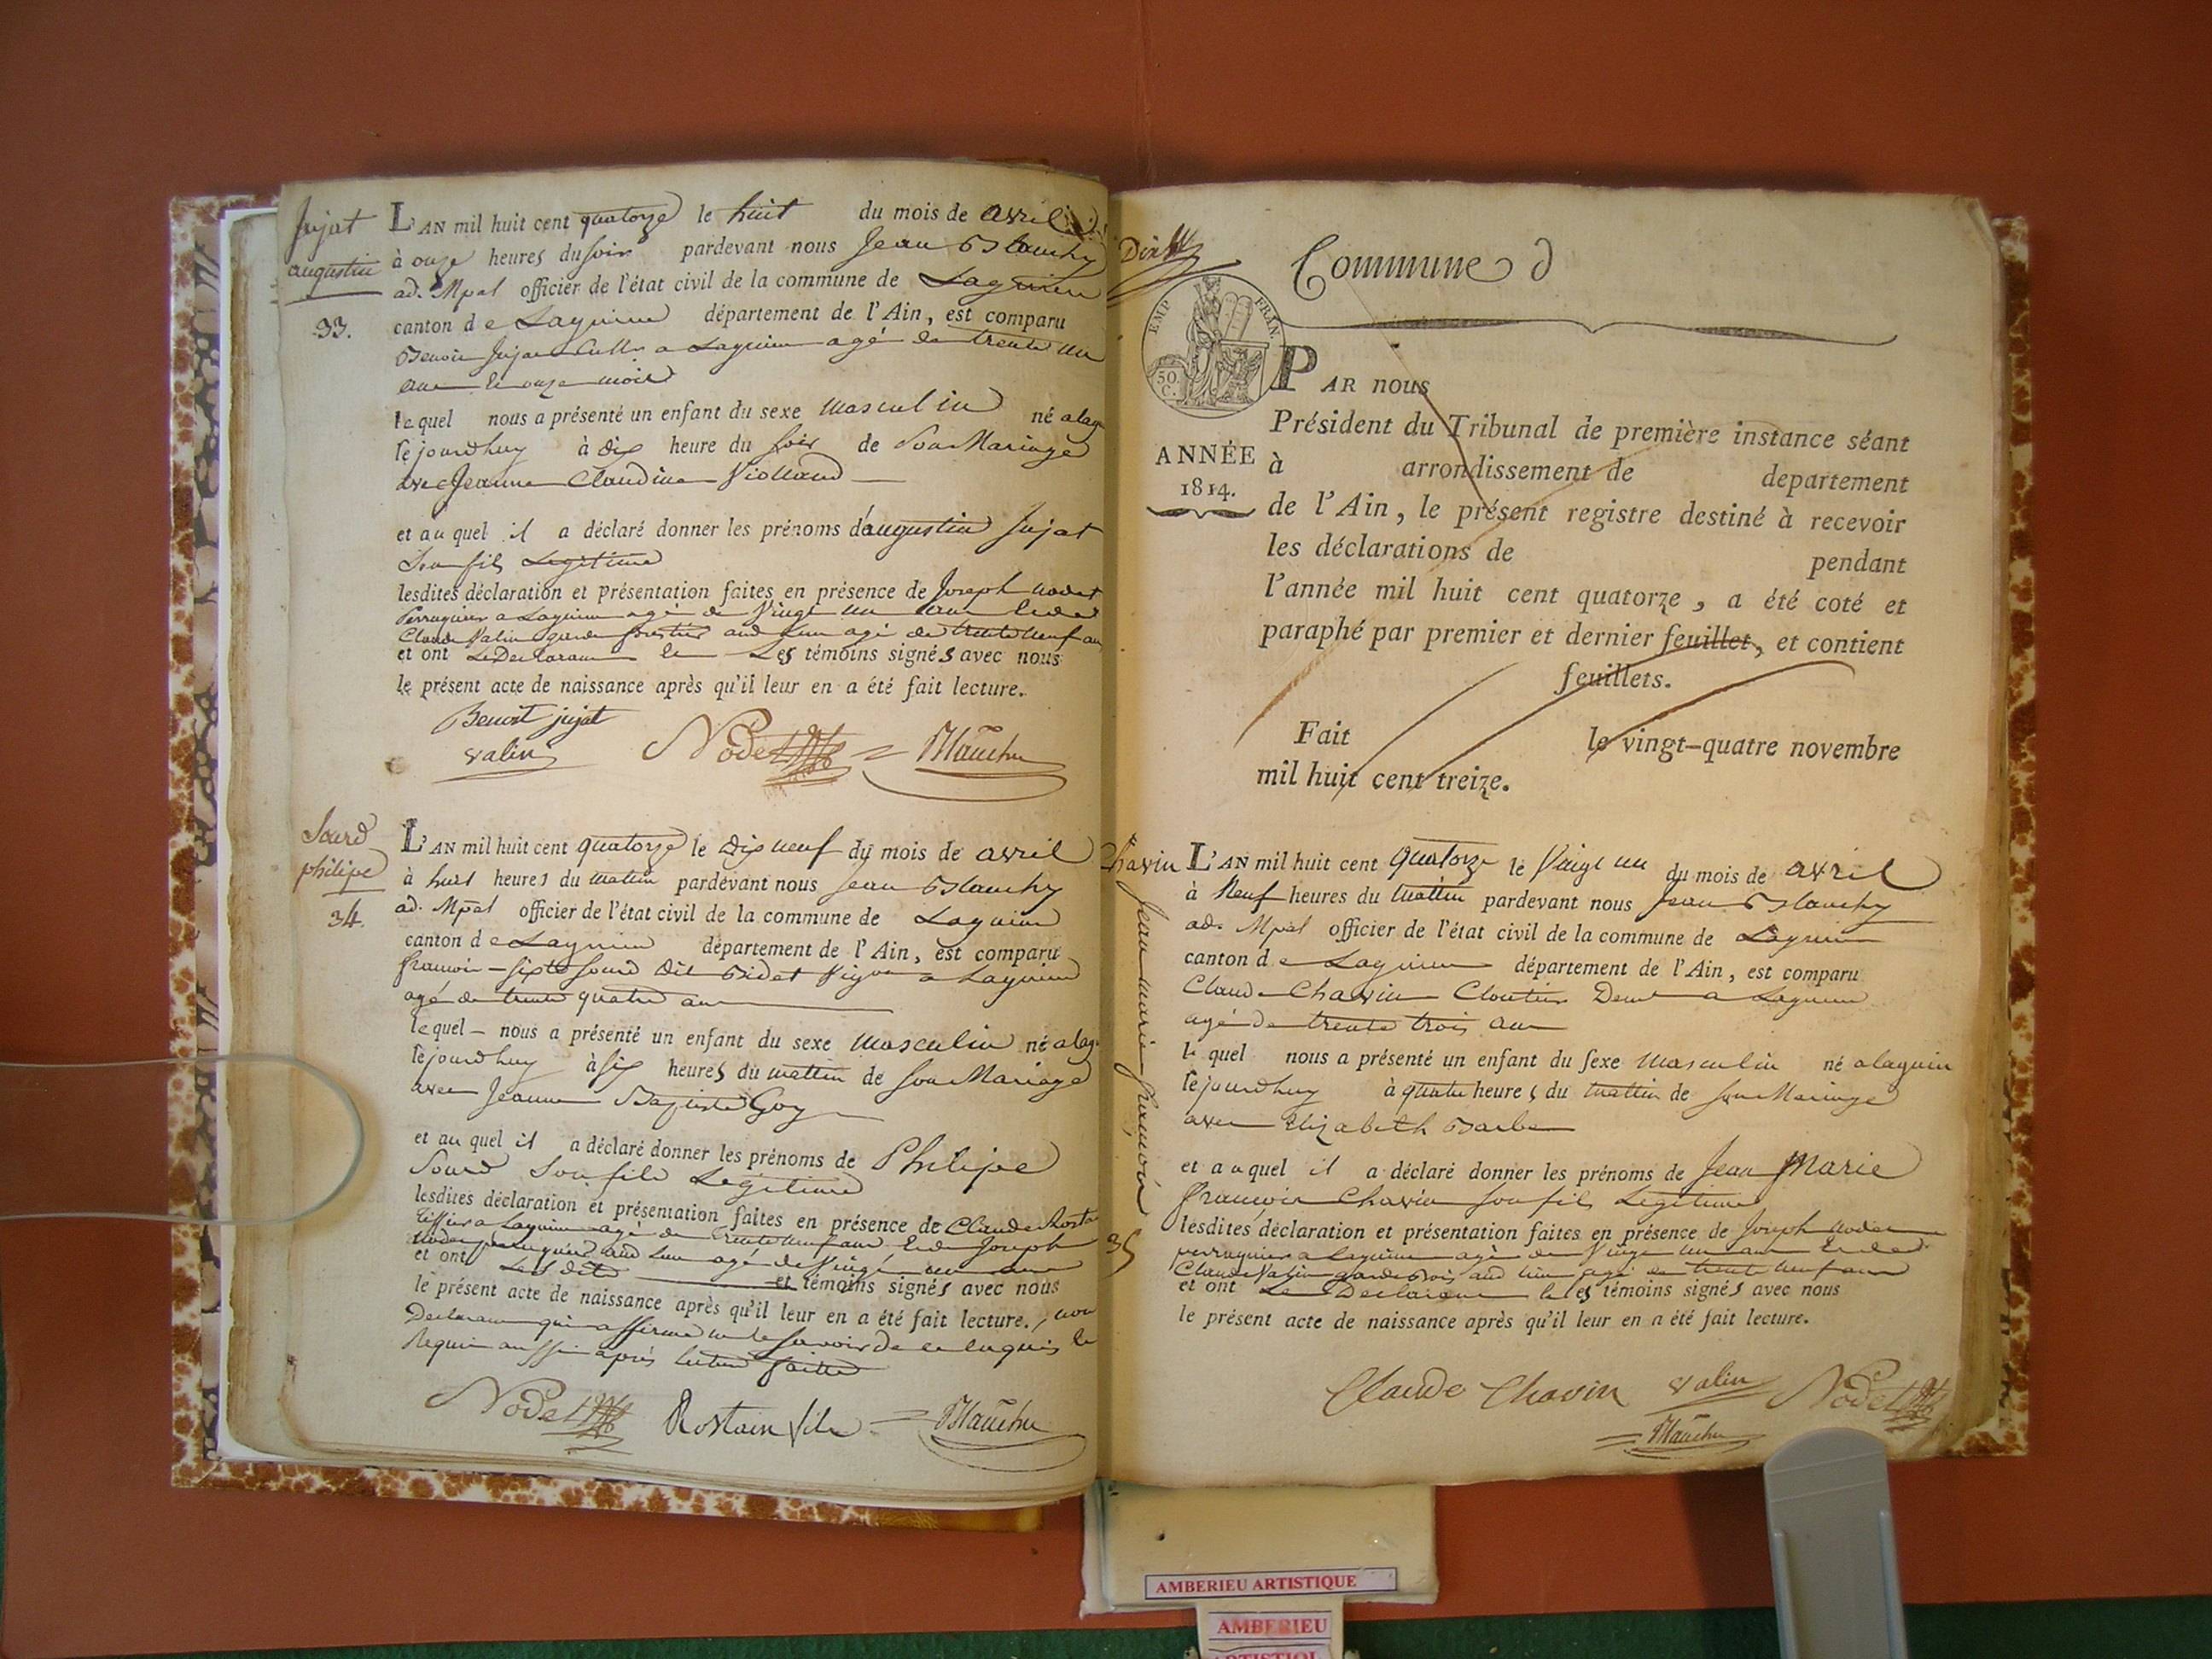 Jujat
augustin
33.
L'AN mil huit cent quatorze le huit du mois de avril
à onze heures du soir pardevant nous Jean Blanchy
ad. Mpal officier de l'état civil de la commune de Lagnieu
canton de Lagnieu département de l'Ain, est comparu
Benoit Jujat Cultr a Lagnieu agé de trente un
ans et onze mois
lequel nous a présenté un enfant du sexe masculin né a lag
cejourdhuy à dix heure du soir de Son Mariage
avec Jeanne Claudine Violland
et auquel il a déclaré donner les prénoms d'augustin Jujat
Son fils Legitime
lesdites déclaration et présentation faites en présence de Joseph Nodet
Perruquier a Lagnieu agé de Vingt un ans et de
Claude Valin garde forestier aud Lieu agé de trente neuf ans
et ont Le Declarant et Les témoins signés avec nous
le présent acte de naissance après qu'il leur en a été fait lecture.
Benoit jujat
valin Nodet Blanchy
Sourd
philipe
34.
L'AN mil huit cent quatorze le dix neuf du mois de avril
à huit heures du mattin pardevant nous Jean Blanchy
ad. Mpal officier de l'état civil de la commune de Lagnieu
canton de Lagnieu département de l'Ain, est comparu
francois Sourd dit Bidet Vigon a Lagnieu
agé de trente quatre ans
lequel nous a présenté un enfant du sexe masculin né a lag
cejourdhuy à six heures du mattin de son Mariage
avec Jeanne Baptiste Goy
et auquel il a déclaré donner les prénoms de Philipe
Sourd Son fils Legitime
lesdites déclaration et présentation faites en présence de Claude Rosta
Tissier a Lagnieu agé de trente neuf ans et de Joseph
Nodet perruquier aud Lieu agé de Vingt un ans
et ont Les dits et témoins signés avec nous
le présent acte de naissance après qu'il leur en a été fait lecture, non
Declarant qui a affirmé ne le savoir de ce enquis et
Requis aussi après lecture faitte
Nodet Rostain fils Blanchy
Dix
Commune d
EMP FRAN
50. C.
ANNÉE
1814.
PAR nous
Président du Tribunal de première instance séant
à arrondissement de departement
de l'Ain, le présent registre destiné à recevoir
les déclarations de pendant
l'année mil huit cent quatorze, a été coté et
paraphé par premier et dernier feuillet, et contient
feuillets.
Fait le vingt-quatre novembre
mil huit cent treize.
Chavin
Jean marie francois
35
L'AN mil huit cent quatorze le Vingt un du mois de avril
à Neuf heures du mattin pardevant nous Jean Blanchy
ad. Mpal officier de l'état civil de la commune de Lagnieu
canton de Lagnieu département de l'Ain, est comparu
Claude Chavin Cloutier Demt a Lagnieu
agé de trente trois ans
lequel nous a présenté un enfant du sexe masculin né a lagnieu
cejourdhuy à quatre heures du mattin de son Mariage
avec Elizabeth Barbe
et auquel il a déclaré donner les prénoms de Jean Marie
françois Chavin son fils Legitime
lesdites déclaration et présentation faites en présence de Joseph Nodet
perruquier a Lagnieu agé de Vingt un ans et de
Claude Valin garde Bois aud lieu agé de trente neuf ans
et ont Le Declarant et les témoins signés avec nous
le présent acte de naissance après qu'il leur en a été fait lecture.
Claude Chavin valin Nodet
Blanchy
AMBERIEU ARTISTIQUE
AMBERIEU
ARTISTIQU